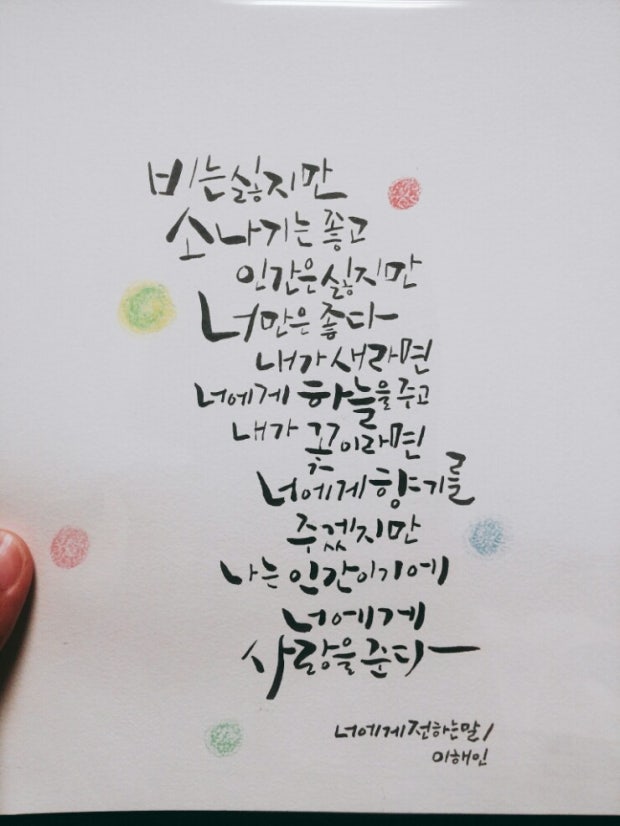 비는 싫지만
소나기는 좋고
인간은 싫지만
너만은 좋다
내가 새라면
너에게 하늘을 주고
내가 꽃이라면
너에게 향기를
주겠지만
나는 인간이기에
너에게
사랑을 준다
너에게 전하는 말/
이해인